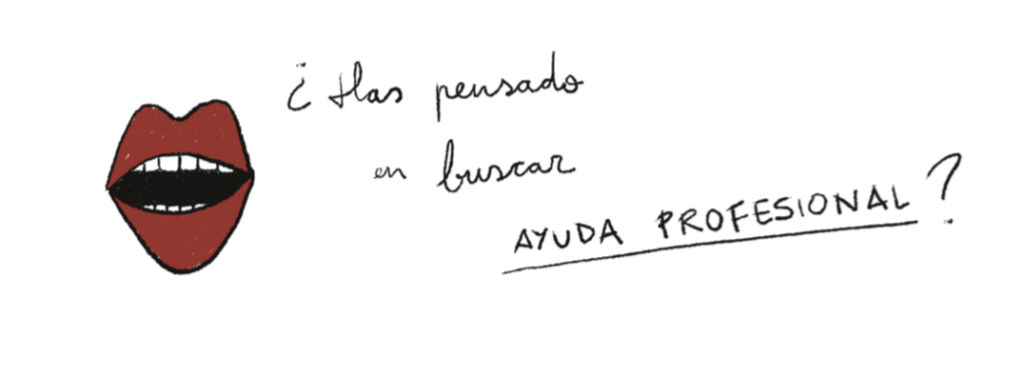 ¿Has pensado
en buscar
AYUDA PROFESIONAL?